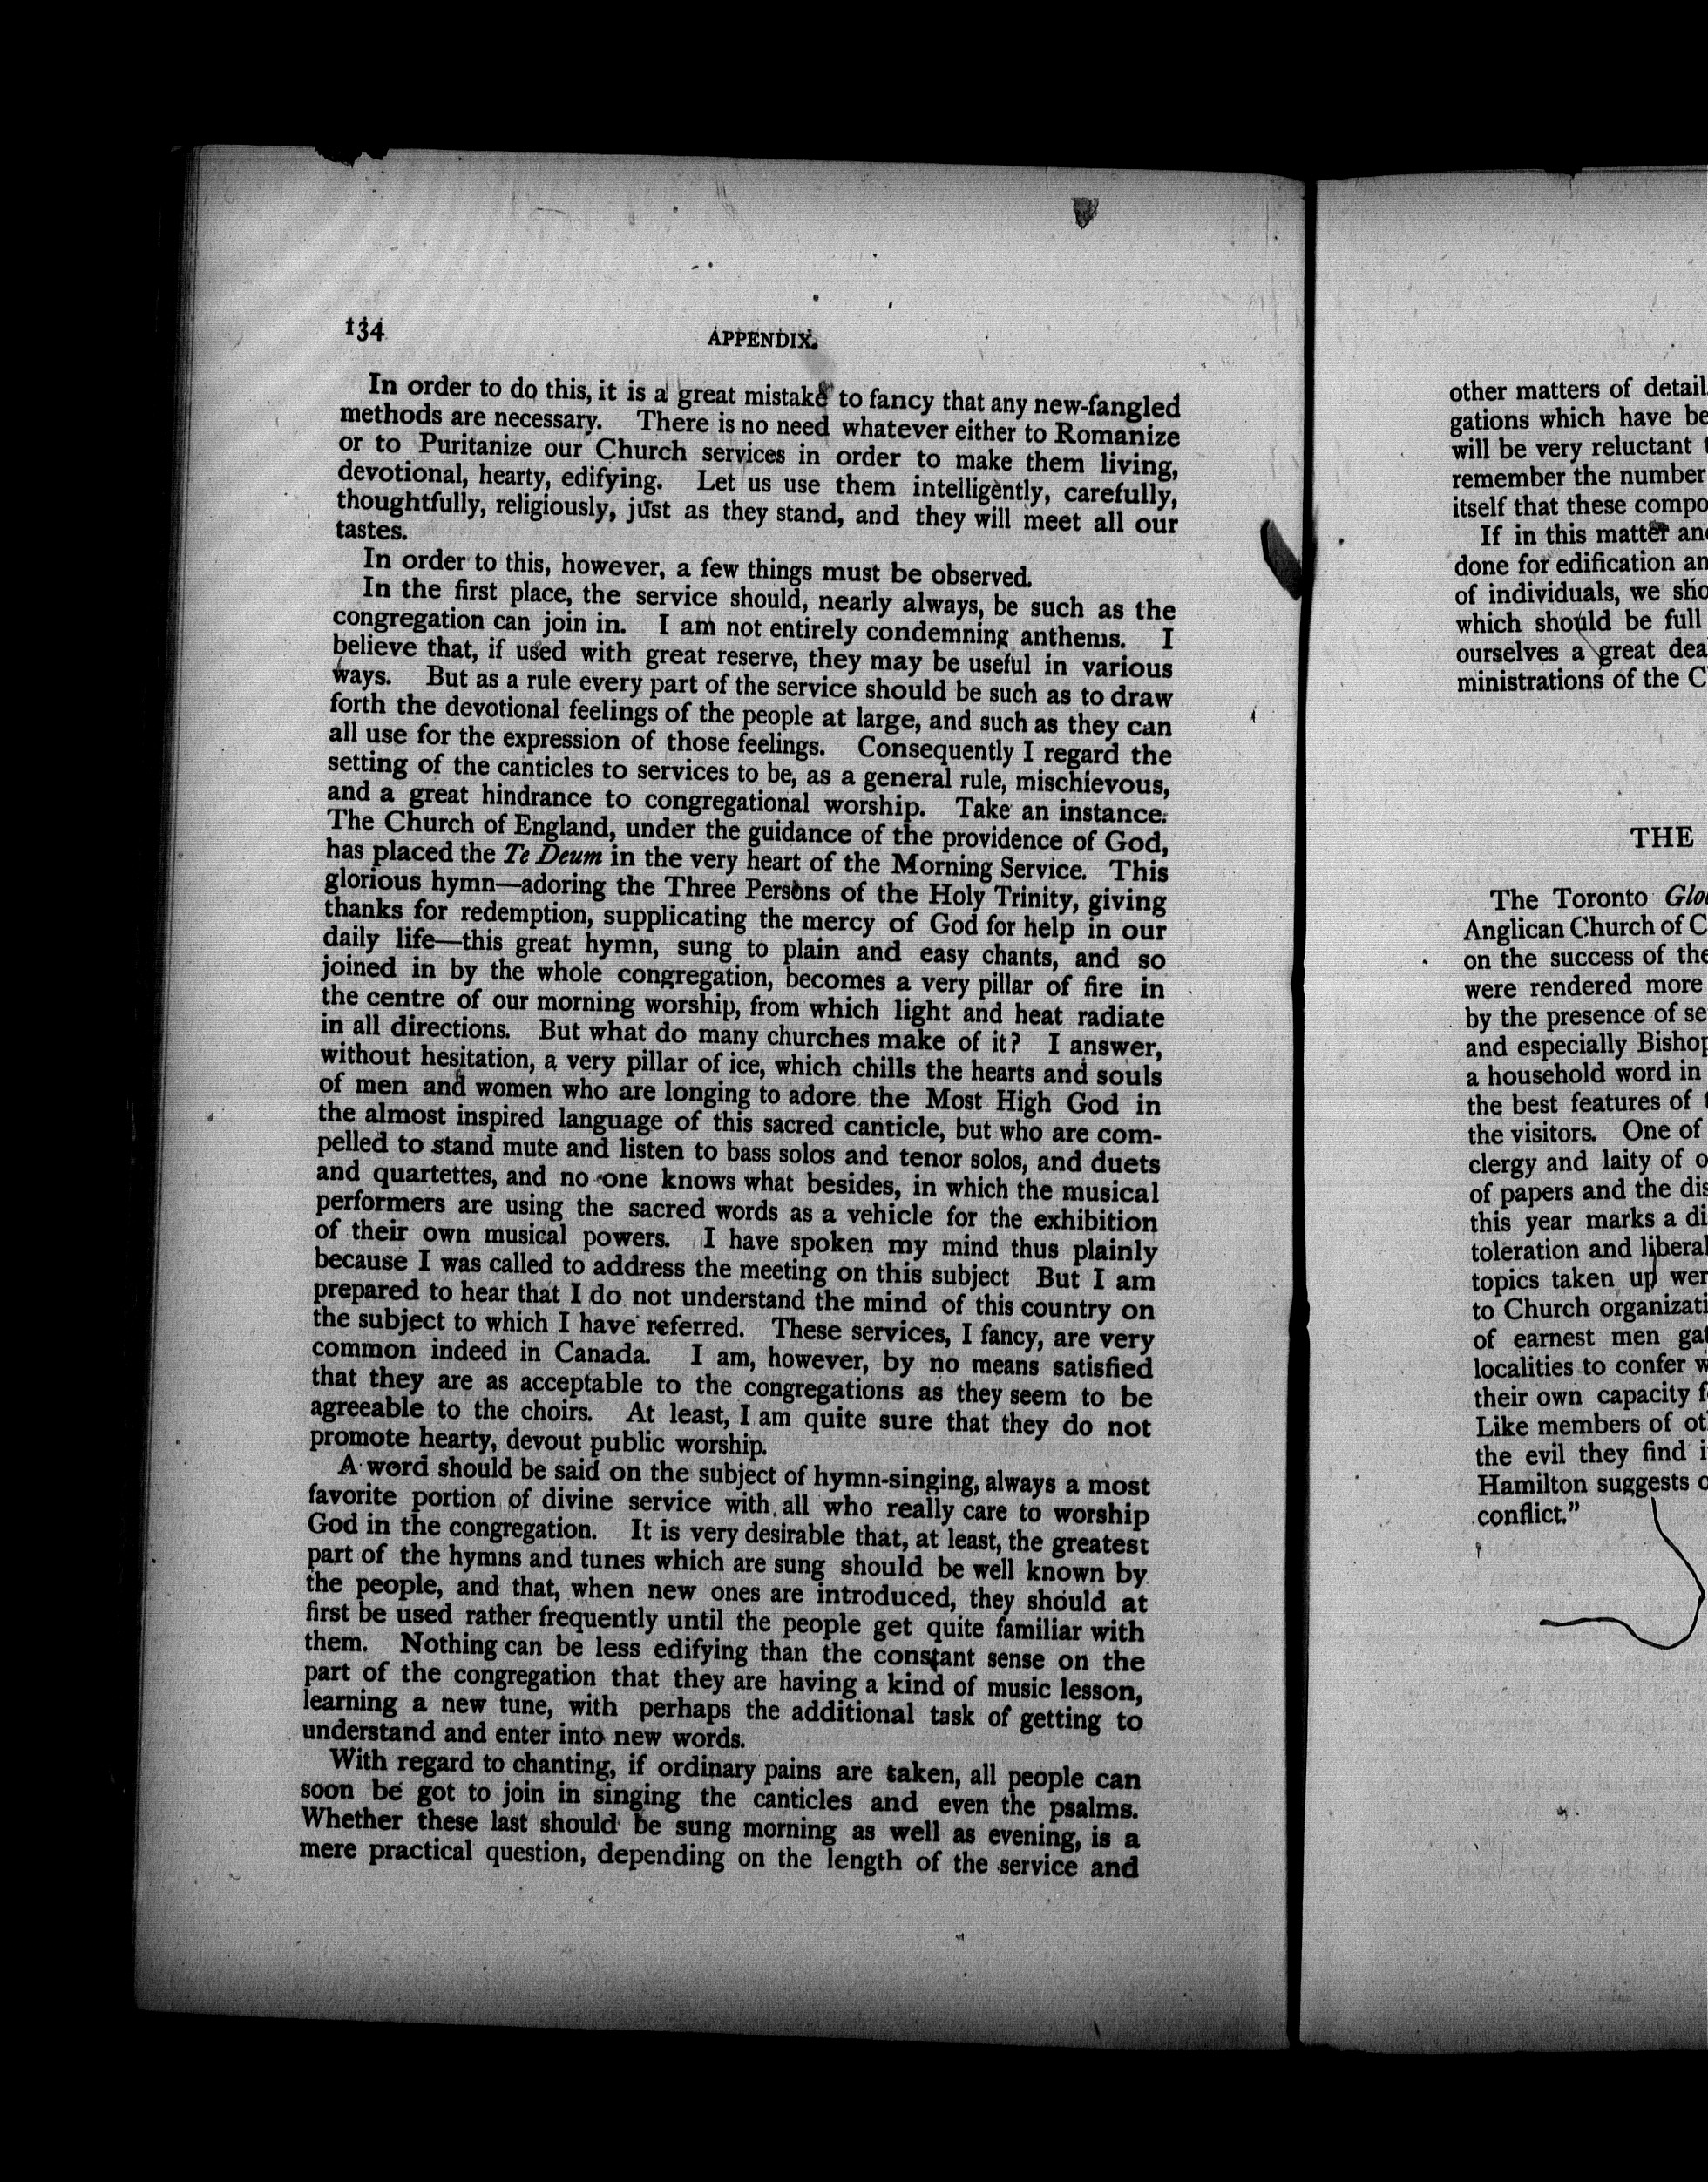 134
APPENDIX.
In order to do this, it is a great mistake to fancy that any new-fangled
methods are necessary. There is no need whatever either to Romanize
or to Puritanize our Church services in order to make them living,
devotional, hearty, edifying. Let us use them intelligently, carefully,
thoughtfully, religiously, just as they stand, and they will meet all our
tastes.
In order to this, however, a few things must be observed.
In the first place, the service should, nearly always, be such as the
congregation can join in. I am not entirely condemning anthems. I
believe that, if used with great reserve, they may be useful in various
ways. But as a rule every part of the service should be such as to draw
forth the devotional feelings of the people at large, and such as they can
all use for the expression of those feelings. Consequently I regard the
setting of the canticles to services to be, as a general rule, mischievous,
and a great hindrance to congregational worship. Take an instance.
The Church of England, under the guidance of the providence of God,
has placed the Te Deum in the very heart of the Morning Service. This
glorious hymn—adoring the Three Persons of the Holy Trinity, giving
thanks for redemption, supplicating the mercy of God for help in our
daily life—this great hymn, sung to plain and easy chants, and so
joined in by the whole congregation, becomes a very pillar of fire in
the centre of our morning worship, from which light and heat radiate
in all directions. But what do many churches make of it? I answer,
without hesitation, a very pillar of ice, which chills the hearts and souls
of men and women who are longing to adore the Most High God in
the almost inspired language of this sacred canticle, but who are com-
pelled to stand mute and listen to bass solos and tenor solos, and duets
and quartettes, and no one knows what besides, in which the musical
performers are using the sacred words as a vehicle for the exhibition
of their own musical powers. I have spoken my mind thus plainly
because I was called to address the meeting on this subject But I am
prepared to hear that I do not understand the mind of this country on
the subject to which I have referred. These services, I fancy, are very
common indeed in Canada. I am, however, by no means satisfied
that they are as acceptable to the congregations as they seem to be
agreeable to the choirs. At least, I am quite sure that they do not
promote hearty, devout public worship.
A word should be said on the subject of hymn-singing, always a most
favorite portion of divine service with all who really care to worship
God in the congregation. It is very desirable that, at least, the greatest
part of the hymns and tunes which are sung should be well known by
the people, and that, when new ones are introduced, they should at
first be used rather frequently until the people get quite familiar with
them. Nothing can be less edifying than the constant sense on the
part of the congregation that they are having a kind of music lesson,
learning a new tune, with perhaps the additional task of getting to
understand and enter into new words.
With regard to chanting, if ordinary pains are taken, all people can
soon be got to join in singing the canticles and even the psalms.
Whether these last should be sung morning as well as evening, is a
mere practical question, depending on the length of the service and
other matters of detail
gations which have be
will be very reluctant
remember the number
itself that these compo
If in this matter an
done for edification an
of individuals, we sho
which should be full
ourselves a great dea
ministrations of the C
THE
The Toronto Glo
Anglican Church of C
on the success of the
were rendered more
by the presence of se
and especially Bishop
a household word in
the best features of
the visitors. One of
clergy and laity of o
of papers and the dis
this year marks a di
toleration and liberal
topics taken up wer
to Church organizati
of earnest men gat
localities to confer w
their own capacity f
Like members of ot
the evil they find i
Hamilton suggests o
conflict."